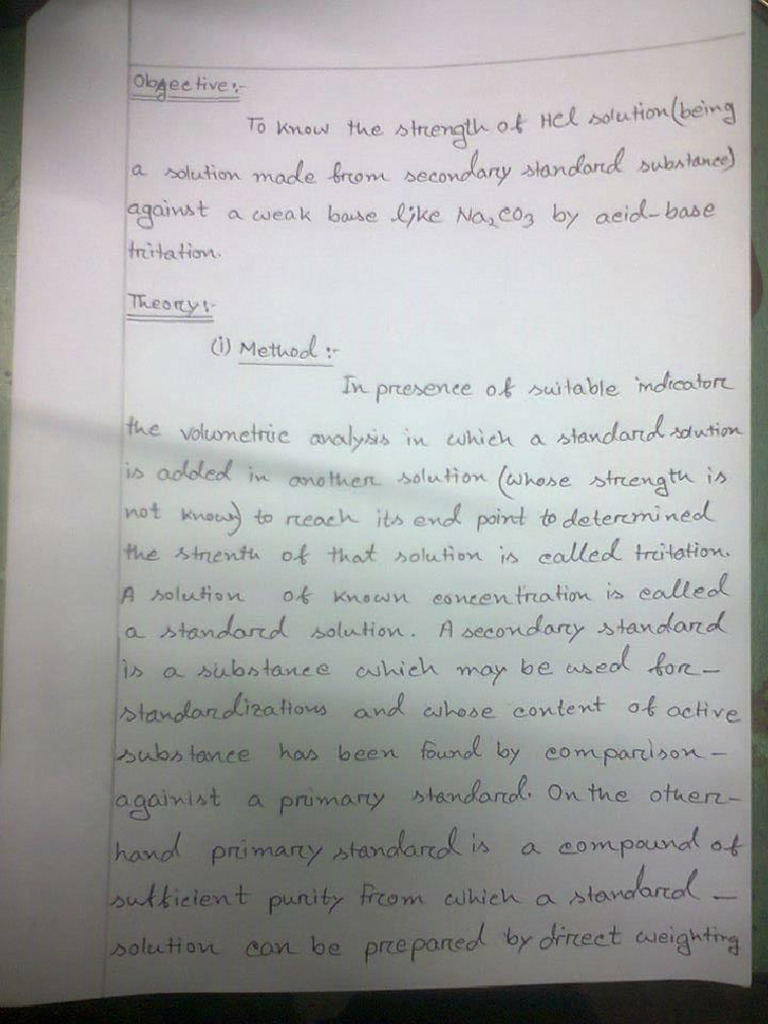 Objective:-
To know the strength of HCl solution (being
a solution made from secondary standard substance)
against a weak base like Na₂CO₃ by acid-base
tritation.
Theory:-
(i) Method :-
In presence of suitable indicator
the volumetric analysis in which a standard solution
is added in another solution (whose strength is
not know) to reach its end point to determined
the strenth of that solution is called tritation.
A solution of known concentration is called
a standard solution. A secondary standard
is a substance which may be used for-
standardizations and whose content of active
substance has been found by comparison-
againist a primary standard. On the other-
hand primary standard is a compound of
sufficient purity from which a standard-
solution can be prepared by direct weighting